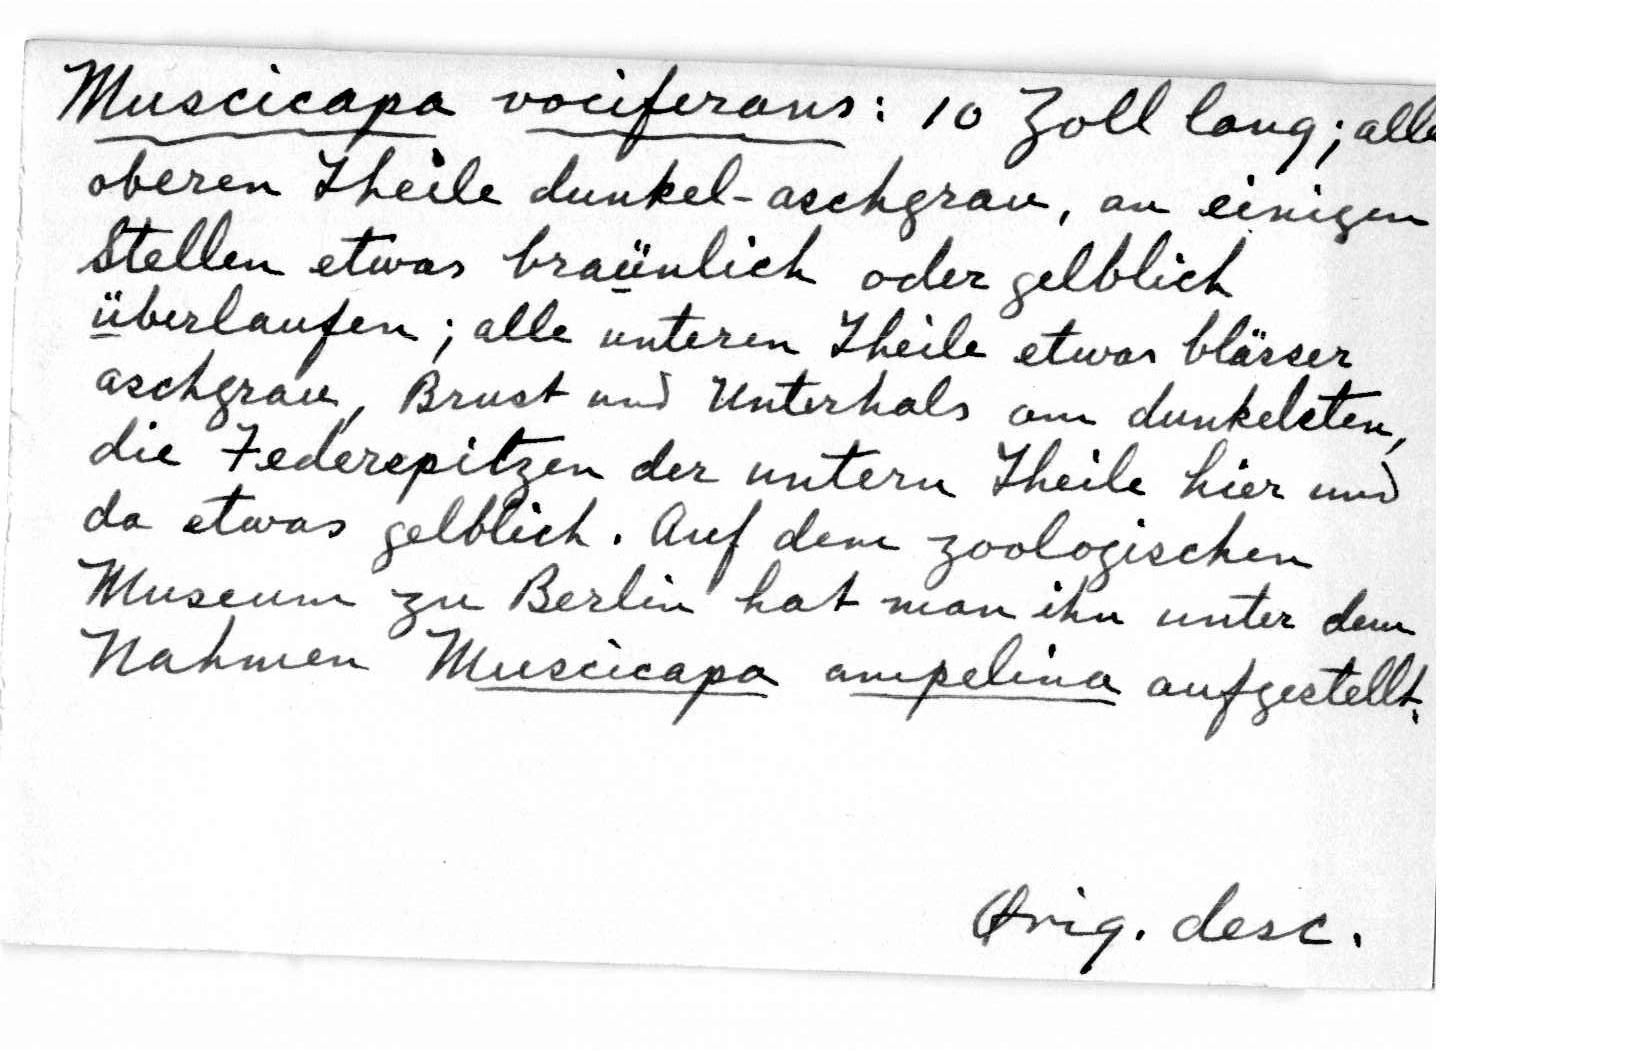 Muscicapa vociferans: 10 Zoll lang; alle
oberen Theile dunkel-aschgrau, an einigen
Stellen etwas bräunlich oder gelblich
überlaufen; alle unteren Theile etwas blässer
aschgrau, Brust und Unterhals am dunkelsten,
die Federspitzen der untern Theile hier und
da etwas gelblich. Auf dem zoologischen
Museum zu Berlin hat man ihn unter dem
Nahmen Muscicapa ampelina aufgestellt.
Orig. desc.